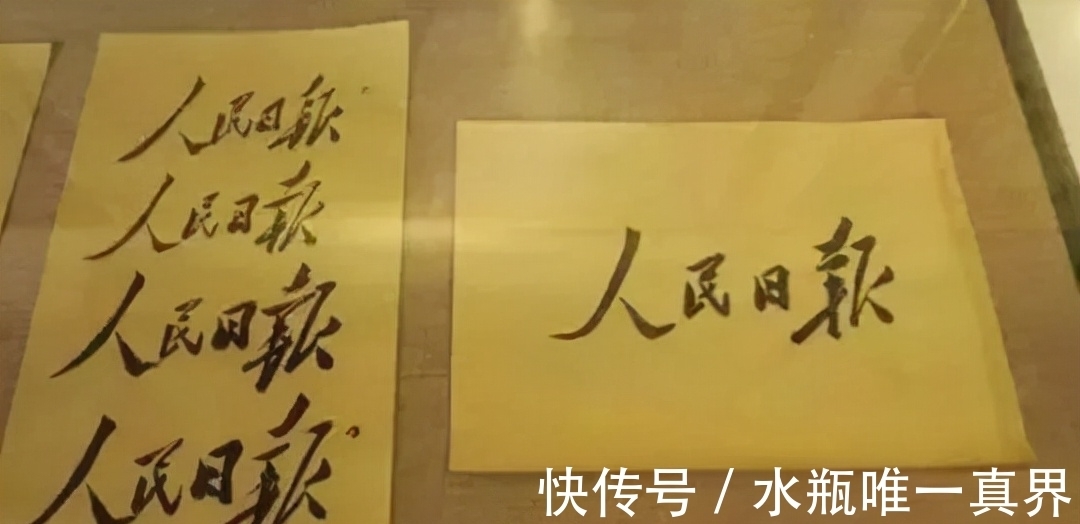 人民日報
人民日報
人民日報
人民日報
人民日報
快传号 / 水瓶唯一真界